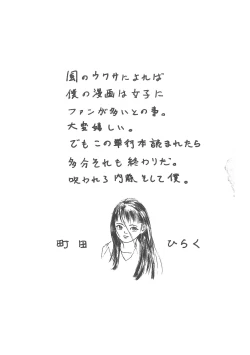 風のウワサによれば
僕の漫画は女子に
ファンが多いとの事。
大変嬉しい。
でもこの単行本読まれたら
多分それも終わりだ。
呪われろ内臓、そして僕。
町田 ひらく